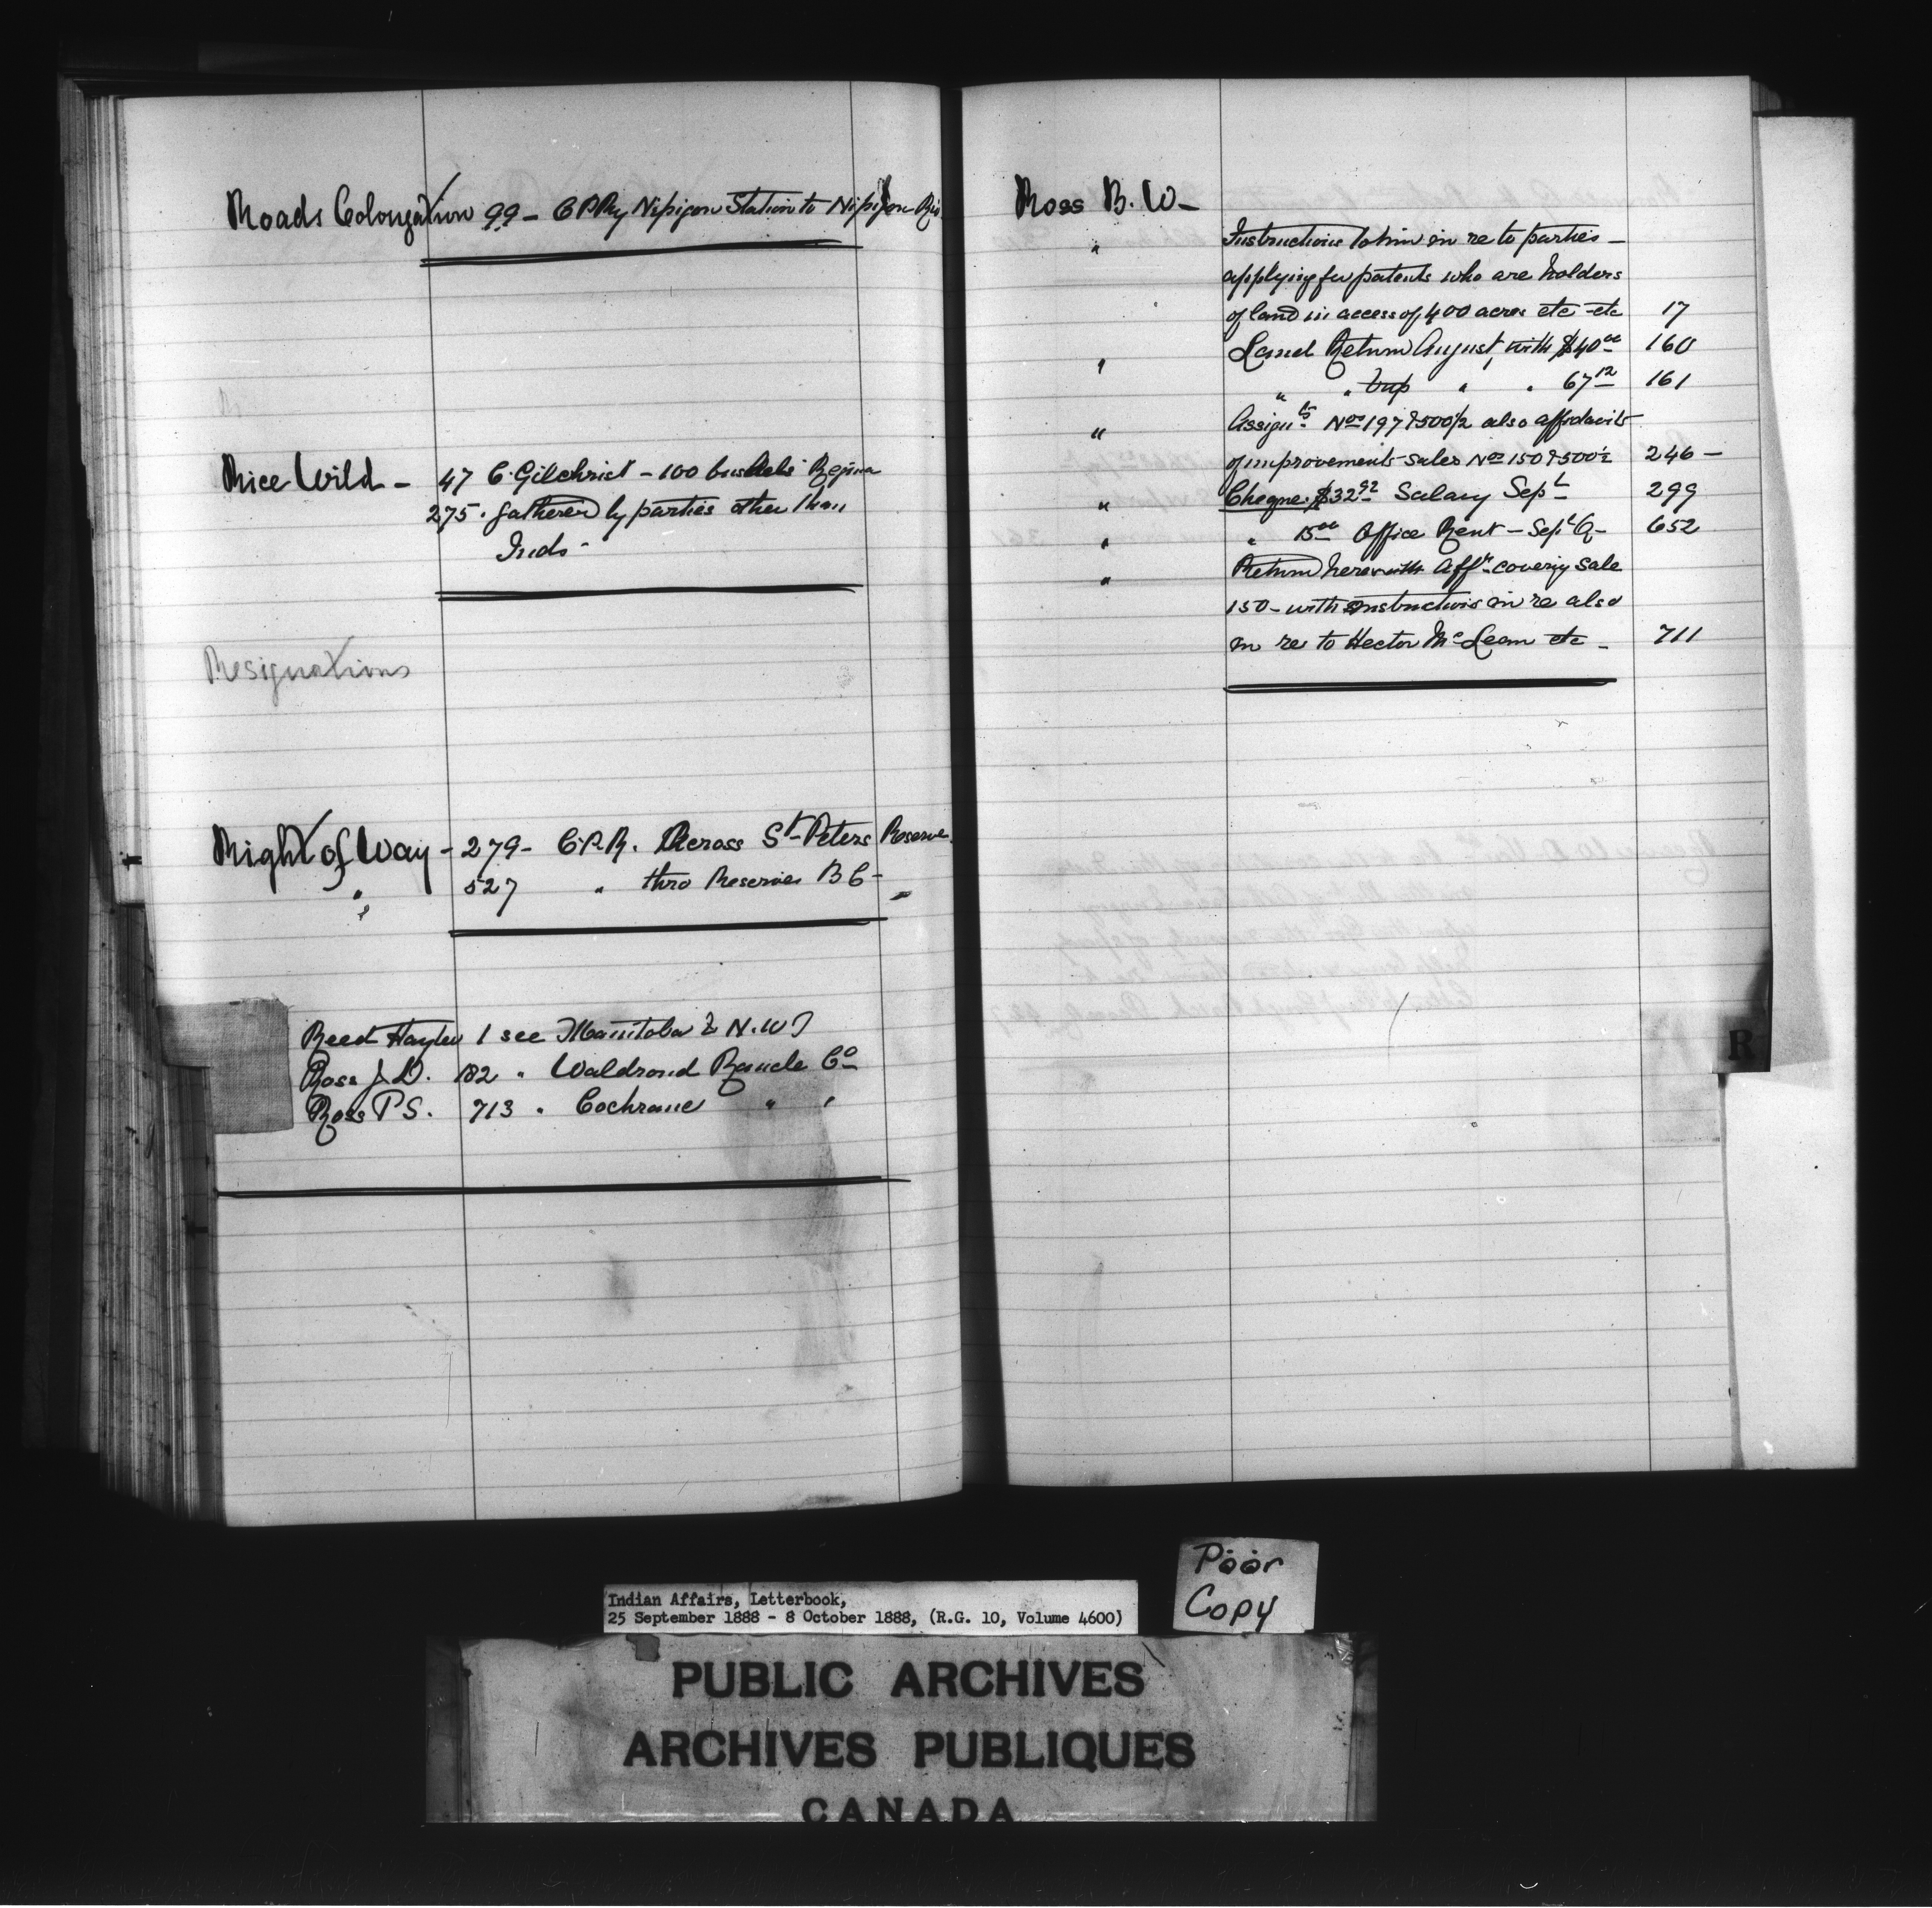 Roads Colonization 99 - C P Ry Nipigon Station to Nipigon Riv
Rice Wild - 47 C. Gilchrist - 100 bushels Regina
275 . gathered by parties other than
Inds -
Resignations
Right of Way - 279 - C.P.R. Across St Peters Reserve
" 527 " thro Reserves B C -
Reed Hayter 1 see Manitoba & N.W T
Ross J. D. 182 " Waldrond Ranche Co
Ross P S. 713 " Cochrane " "
Ross B. W -
" Instructions to him in re to parties -
applying for patents who are holders
of land in access of 400 acres etc etc 17
" Land Return August, with $40 00 160
" " " " 67 12 161
" Assignts Nos 197 & 500½ also affidavits
of improvements Sales Nos 150 & 500½ 246 -
" Cheque $32 92 Salary Sept 299
" " 15 00 Office Rent - Sept Q - 652
" Return herewith Aff covering Sale
150 - with instructions in re also
in re to Hector McLean etc - 711
R
Poor
Copy
Indian Affairs, Letterbook,
25 September 1888 - 8 October 1888, (R.G. 10, Volume 4600)
PUBLIC ARCHIVES
ARCHIVES PUBLIQUES
CANADA